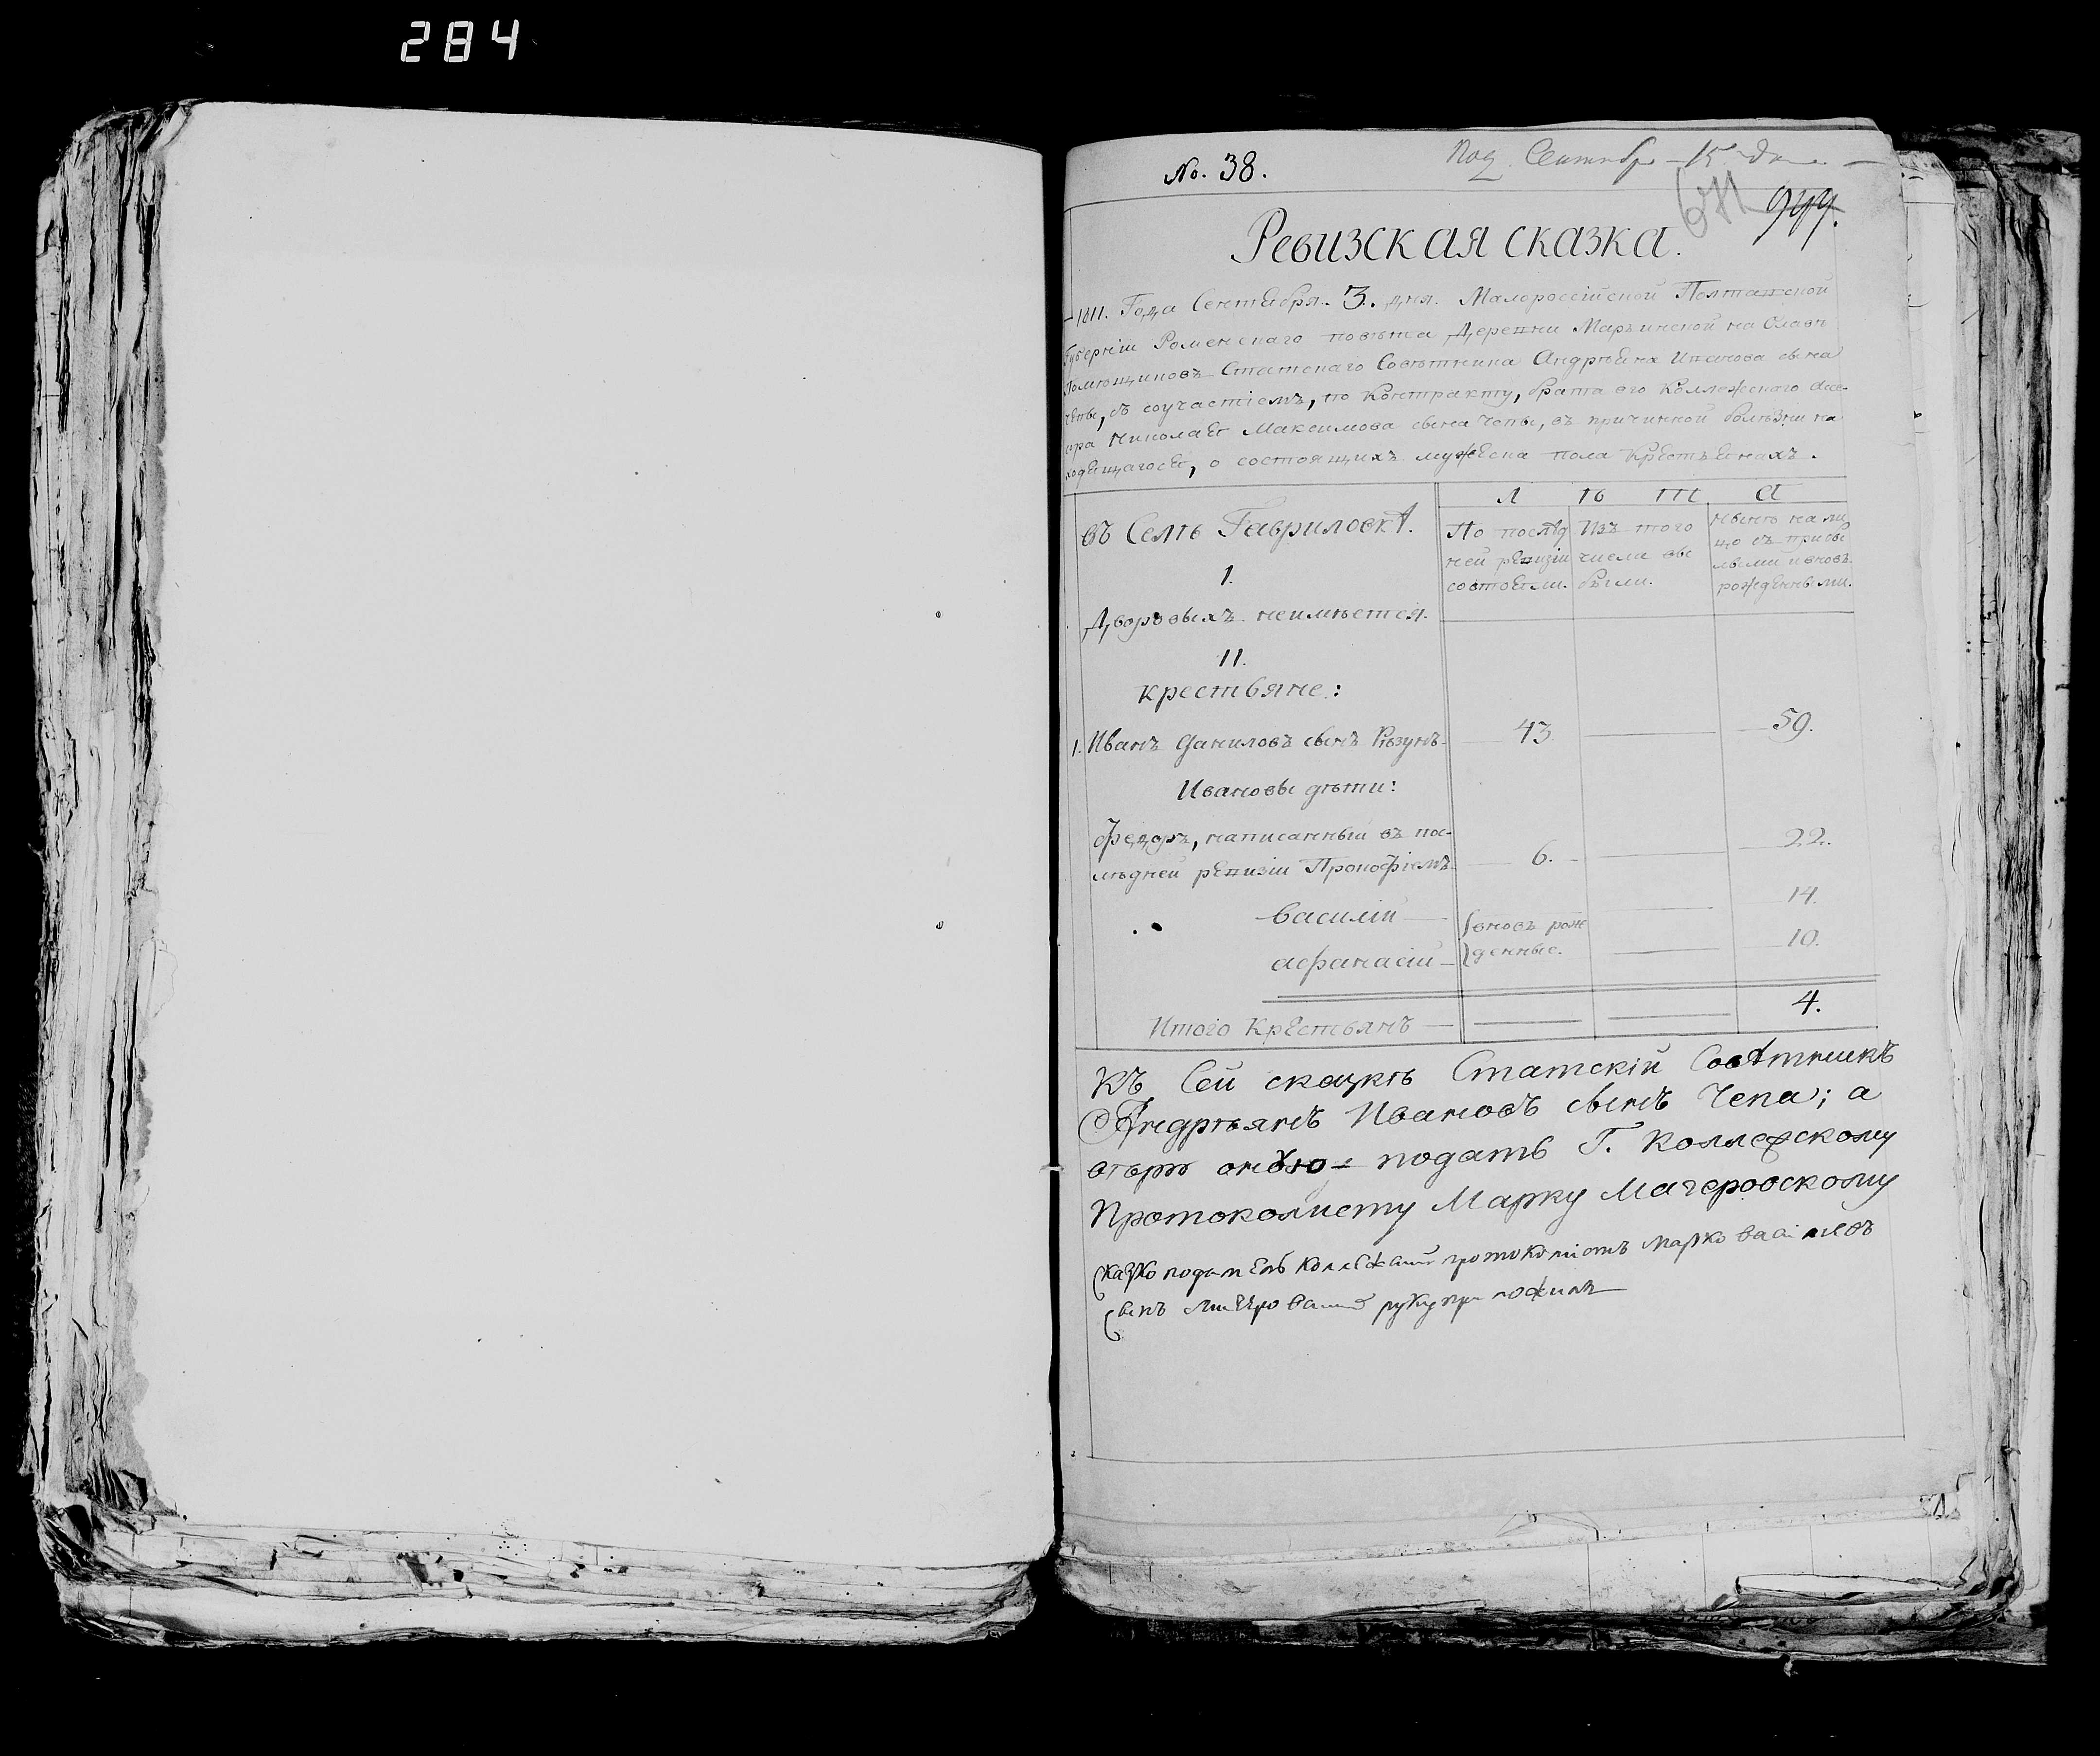 284
No. 38.
Под. Сентябр 15 дня
611 944.
Ревизская сказка.
1811. Года Сентября. 3. дня. Малороссійской Полтавской
Губерніи Роменскаго повѣта Деревни Марьинской на Олавѣ
Помѣщиковъ Статскаго Совѣтника Андрѣяна Иванова сына
Чепы, съ соучастіемъ, по Контракту, брата его Коллежского асе-
сора Николая Максимова сына Чепы, въ причинной болѣзни на
ходящагося, о состоящихъ мужеска пола Крестьянахъ.
Л ѣ т а
въ Селѣ Гавриловкѣ.
По послѣд
ней ревизіи
состояли.
Изъ того
числа вы
были.
Нынѣ на ли
цо съ прибы
лыми и вновь
рожденными.
I.
Дворовыхъ неимѣется.
II.
крестьяне:
1. Иванъ Даниловъ сынъ Рѣзунъ 43 59.
Ивановы дѣти:
Федоръ, написанный въ пос-
лѣдней ревизіи Прокофіемъ 6. 22.
Василій вновь рож 14.
Афанасій денные. 10.
Итого Крестьянъ 4.
Къ Сей скаzкѣ Статскій Совѣтникъ
Андрѣянъ Ивановъ сынъ Чепа; а
вѣрю оною подать Г. Коллежскому
Протоколисту Марку Мачеровскому
скаzко податель Колежский протоколистъ Марко Васілевъ
сынъ Мачеровский руку приложилъ